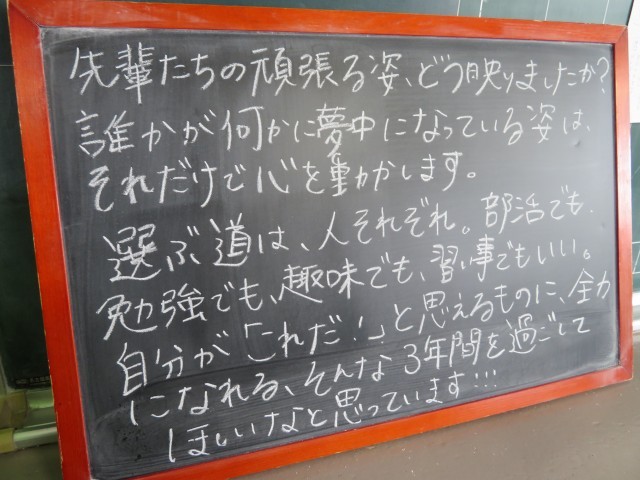 先輩たちの頑張る姿、どう映りましたか?
誰かが何かに夢中になっている姿は、
それだけで心を動かします。
選ぶ道は、人それぞれ。部活でも、
勉強でも、趣味でも、習い事でもいい。
自分が「これだ!」と思えるものに、全力
になれる、そんな3年間を過ごして
ほしいなと思っています!!!